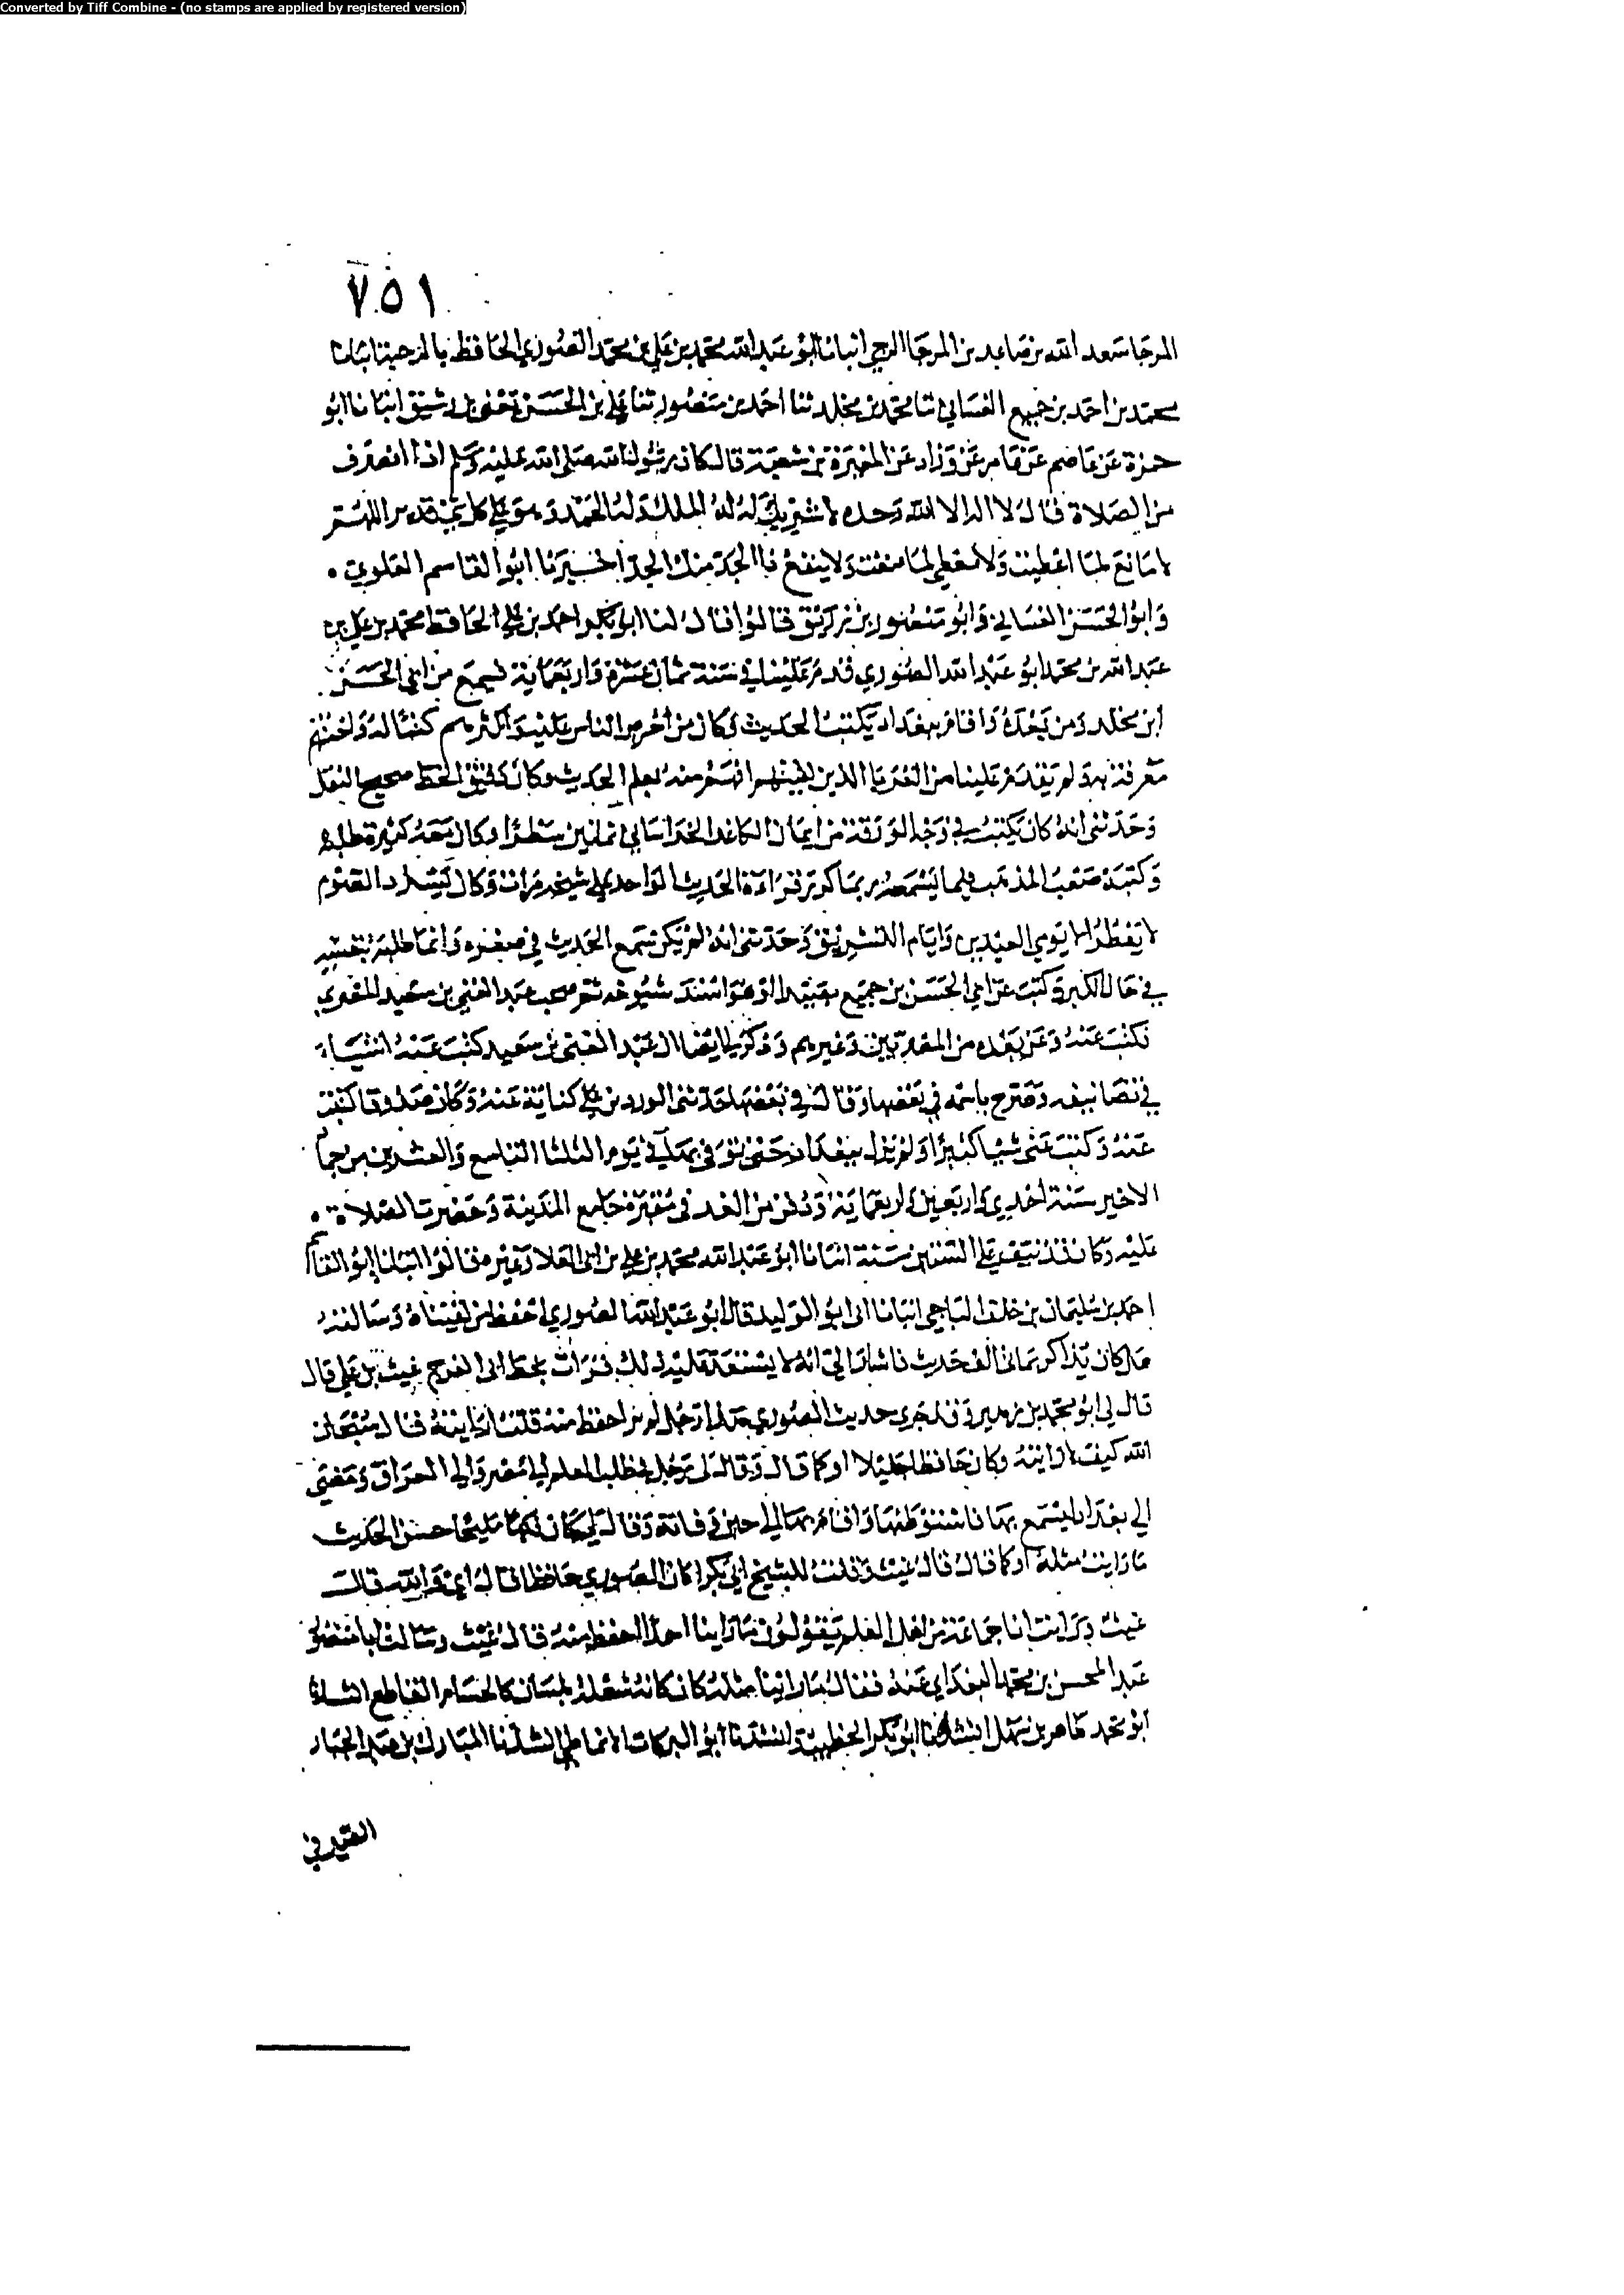 Converted by Tiff Combine - (no stamps are applied by registered version)
٧٥١
المرجا سعد الله بن صاعد بن المرجا الرحبي انبانا ابو عبد الله محمد بن علي بن محمد الصوري الحافظ بالرحبة انبانا
محمد بن احمد بن جميع الغساني ثنا محمد بن مخلد ثنا احمد بن منصور ثنا علي بن الحسن يعني بن شقيق انبانا ابو
حمزة عن عاصم عن عامر عن وراد عن المغيرة بن شعبة قال كان رسول الله صلى الله عليه وسلم اذا انصرف
من الصلاة قال لا اله الا الله وحده لا شريك له له الملك وله الحمد وهو على كل شي قدير اللهم
لا مانع لما اعطيت ولا معطي لما منعت ولا ينفع ذا الجد منك الجد اخبرنا ابو القاسم العلوي .
وابو الحسن الغساني وابو منصور بن زريق قالوا قال لنا ابو بكر احمد بن علي الحافظ محمد بن علي بن
عبد الله بن محمد ابو عبد الله الصوري قدم علينا في سنة ثمان عشرة واربعماية فسمع من ابي الحسن
ابن مخلد ومن بعده واقام ببغداد يكتب الحديث وكان من احرص الناس عليه واكثرهم كتبا له واحسنهم
معرفة به ولم يقدم علينا من الغربا الذين لقيتهم افهم منه بعلم الحديث وكان دقيق الخط صحيح النقل
وحدثني انه كان يكتب في وجه الورقة من اثمان الكاغد الخراساني ثمانين سطرا وكان مع كثرة طلبه
وكتبه صعب المذهب فيما يسمعه ربما كرر قراءة الحديث الواحد على شيخه مرات وكان يسرد الصوم
لا يفطر الا يومي العيدين وايام التشريق وحدثني انه لم يكن سمع الحديث في صغره وانما طلبه بنفسه
في حال الكبر وكتب عن ابي الحسن بن جميع بصيدا وهو اسند شيوخه ثم صحب عبد الغني بن سعيد المصري
فكتب عنه وعن بعده من المصريين وغيرهم وذكر لي ايضا ان عبد الغني بن سعيد كتب عنه اشياء
في تصانيفه وصرح باسمه في بعضها وقال في بعضها حدثني الورد بن علي كناية عنه وكان صدوقا كتبت
عنه وكتب عني شيا كثيرا ولم يزل ببغداد حتى توفي بها في يوم الثلثا التاسع والعشرين من جمادى
الاخير سنة احدي واربعين واربعماية ودفن من الغد في مقبرة جامع المدينة وحضرت الصلاة .
عليه وكان قد نيف على الستين سنة انبانا ابو عبد الله محمد بن علي بن ابي العلا وغيره قالوا انبانا ابو القاسم
احمد بن سليمان بن خلف الباجي انبانا ابي ابو الوليد قال ابو عبد الله الصوري احفظ من لقيناه وسالته
هل كان يذاكر بماتي الف حديث فاشار الي انه لا يستبعد عليه ذلك قرات بخط ابي الفرج غيث بن علي قال
قال لي ابو محمد بن وقد جرى حديث الصوري هذا رجل لم نر احفظ منه قلت رايته فقال سبحان
الله كيف لا رايته وكان حافظا جليلا او كما قال وقال لي رحل في طلب العلم الي مصر والي العراق ومضى
الي بغداد ليسمع بها فاستوطنها واقام بها الي حين وفاته وقال لي كان فكها مليحا حسن الحديث
ما رايت مثله او كما قال قال غيث وقلت للشيخ ابي بكر اكان الصوري حافظا قال اي والله قال
غيث ورايت انا جماعة من اهل العلم يقولون ما راينا احدا احفظ منه قال غيث وسالت ابا منصور
عبد المحسن بن محمد البغدادي عنه فقال ما راينا مثله كان كانه شعلة بلسان كالحسام القاطع انشدنا
ابو محمد طاهر بن سهل انشدنا ابو بكر الخطيب وانشدنا ابو البركات الانماطي انشدنا المبارك بن عبد الجبار
الصيرفي